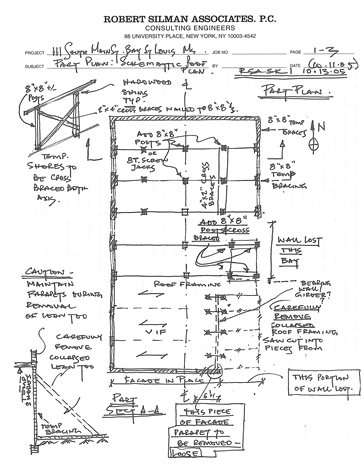 ROBERT SILMAN ASSOCIATES. P.C.
CONSULTING ENGINEERS
88 UNIVERSITY PLACE, NEW YORK, NY 10003-4542
PROJECT 111 SOUTH MAIN ST. BAY ST LOUIS MS. JOB NO. PAGE 1-3
SUBJECT PART PLAN. SCHEMATIC ROOF PLAN. BY DATE
RSA-SK1 10.13.05
PART PLAN.
8"x8" +/-
POSTS
HARDWOOD
SHIMS
TYP.
2"x4" CROSS BRACES NAILED TO 8"x8"S
TEMP.
SHORES TO
BE CROSS
BRACED BOTH
AXIS.
ADD 8"x8"
POSTS
OR
ST. SCREW
JACKS
4"x2" CROSS
BRACES
8"x8"
TEMP
BRACES
8"x8"
TEMP
BRACING
ADD 8"x8"
POSTS CROSS
BRACED
WALL LOST
THIS
BAY
CAUTION -
MAINTAIN
PARAPETS DURING
REMOVAL
OF LEAN TOO
ROOF FRAMING
VIF
BEARING
WALL/
GIRDER?
CAREFULLY
REMOVE
COLLAPSED
ROOF FRAMING
SAW CUT INTO
PIECES FROM
CAREFULLY
REMOVE
COLLAPSED
LEAN TOO
TEMP
BRACING
FACADE IN PLACE
PART
SECT A-A
THIS PIECE
OF FACADE
PARAPET TO
BE REMOVED -
LOOSE
THIS PORTION
OF WALL LOST.